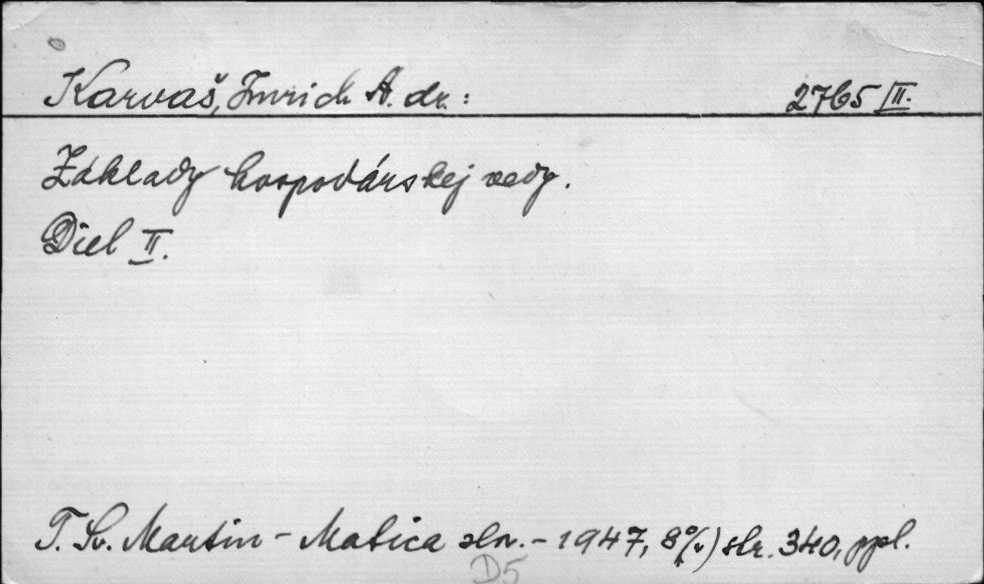 Karvaš, Imrich A. dr.: 2765 II.
Základy hospodárskej vedy.
Diel II.
T. Sv. Martin - Matica slov. - 1947, 8°/v) str. 340, ppl.
D5